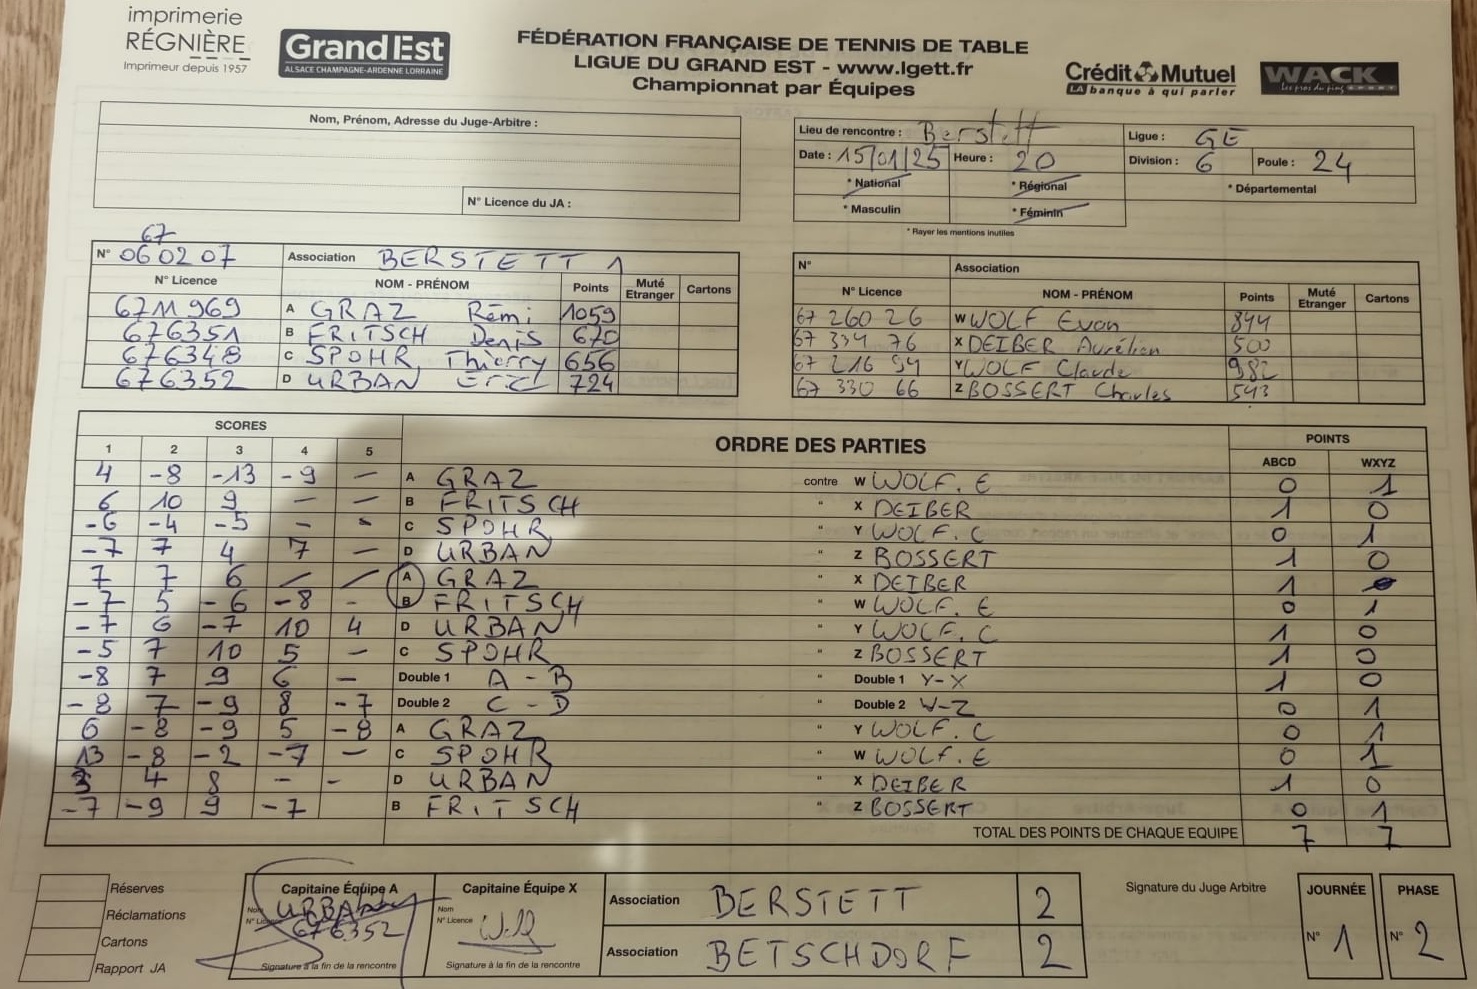 imprimerie
RÉGNIÈRE
Imprimeur depuis 1957
GrandEst
ALSACE CHAMPAGNE-ARDENNE LORRAINE
FÉDÉRATION FRANÇAISE DE TENNIS DE TABLE
LIGUE DU GRAND EST - www.lgett.fr
Championnat par Équipes
Crédit Mutuel
LA banque à qui parler
WACK
Les pros du ping SPORT
Nom, Prénom, Adresse du Juge-Arbitre :
N° Licence du JA :
Lieu de rencontre : Berstett Ligue : GE
Date : 15/01/25 Heure : 20 Division : 6 Poule : 24
* National * Régional * Départemental
* Masculin * Féminin
* Rayer les mentions inutiles
67
N° 060207 Association BERSTETT 1
N° Licence NOM - PRÉNOM Points Muté Etranger Cartons
6711969 A GRAZ Rémi 1059
676351 B FRITSCH Denis 670
676348 C SPOHR Thierry 656
676352 D URBAN Eric 724
N° Association
N° Licence NOM - PRÉNOM Points Muté Etranger Cartons
67 260 26 W WOLF Evan 844
67 334 76 X DEIBER Aurélien 500
67 216 94 Y WOLF Claude 982
67 330 66 Z BOSSERT Charles 543
SCORES ORDRE DES PARTIES POINTS
1 2 3 4 5 ABCD WXYZ
4 -8 -13 -9 — A GRAZ contre W WOLF. E 0 1
6 10 9 — — B FRITSCH " X DEIBER 1 0
-6 -4 -5 - - C SPOHR " Y WOLF. C 0 1
-7 7 4 7 — D URBAN " Z BOSSERT 1 0
7 7 6 / / A GRAZ " X DEIBER 1 0
-7 5 -6 -8 - B FRITSCH " W WOLF. E 0 1
-7 6 -7 10 4 D URBAN " Y WOLF. C 1 0
-5 7 10 5 — C SPOHR " Z BOSSERT 1 0
-8 7 9 6 — Double 1 A - B " Double 1 Y-X 1 0
-8 7 -9 8 -7 Double 2 C - D " Double 2 W-Z 0 1
6 -8 -9 5 -8 A GRAZ " Y WOLF. C 0 1
13 -8 -2 -7 — C SPOHR " W WOLF. E 0 1
3 4 8 - - D URBAN " X DEIBER 1 0
-7 -9 9 -7 B FRITSCH " Z BOSSERT 0 1
TOTAL DES POINTS DE CHAQUE EQUIPE 7 7
Réserves
Réclamations
Cartons
Rapport JA
Capitaine Équipe A
Nom URBAN
N° Licence 676352
Signature à la fin de la rencontre
Capitaine Équipe X
Nom
N° Licence Wolf
Signature à la fin de la rencontre
Association BERSTETT 2
Association BETSCHDORF 2
Signature du Juge Arbitre
JOURNÉE
N° 1
PHASE
N° 2